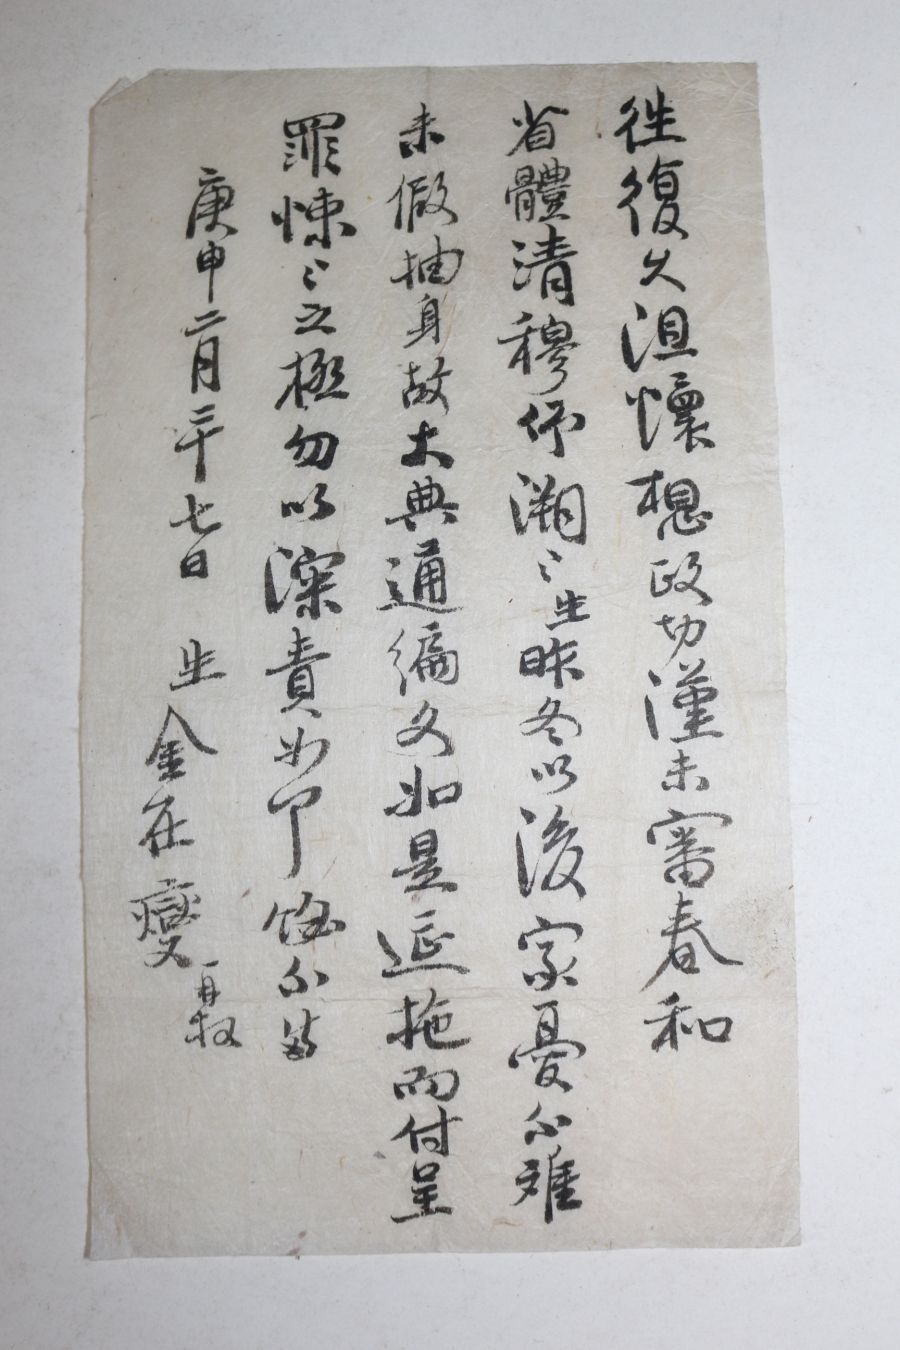 往復久沮懷想政切謹未審春和
省體清穆仰溯〻生昨冬以後家憂不離
未假抽身故大典通編又如是延拖而付呈
罪悚〻之極勿以深責如何餘不備
庚申二月二十七日 生 金在燮 再拜